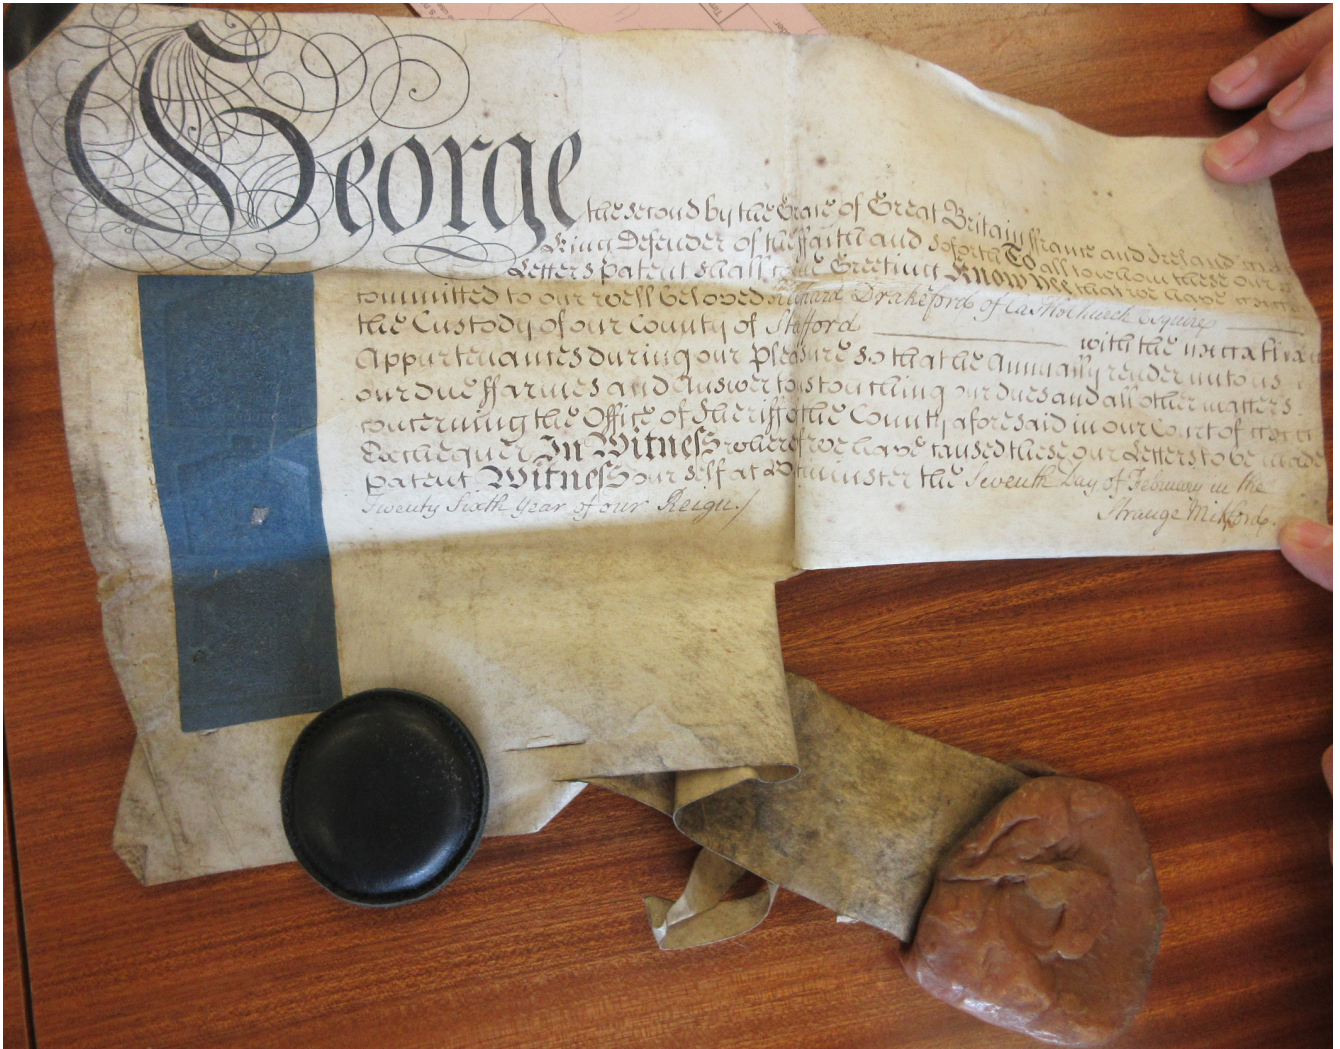 George the second by the Grace of Great Britain ffrance and Ireland
King Defender of the ffaith and soforth To all to whom these our
Letters patent shall come Greeting Know yee that we have
committed to our well beloved Richard Drakeford of Esquire
the Custody of our County of Stafford with the
Appurtenances during our pleasure so that he Annually render unto us
our due ffarmes and Answer to us touching our dues and all other matters
concerning the Office of Sheriff of the County aforesaid in our Court of
Exchequer In Witness whereof we have caused these our Letters to be made
patent Witness our self at Westminster the Seventh Day of February in the
Twenty Sixth Year of our Reign./
Strange